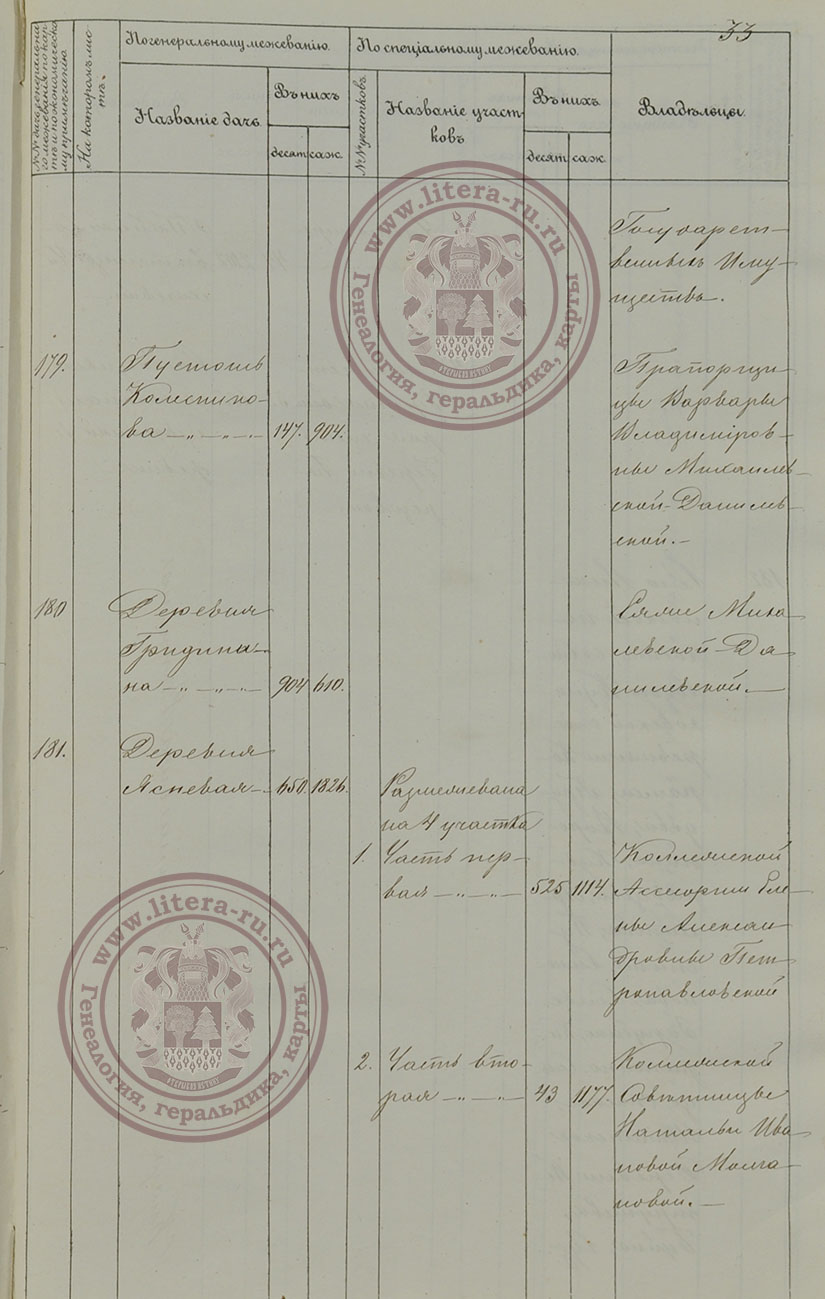 33
№№ дачъ генеральна
го межеванія по кар
тѣ и по экономическо
му примѣчанію
На которомъ лис
тѣ.
По генеральному межеванію.
Названіе дачъ.
Въ нихъ
десят
саж.
По спеціальному межеванію.
№№ участковъ.
Названіе участ-
ковъ
Въ нихъ
десят
саж.
Владѣльцы.
Государст-
венныхъ Иму-
ществъ.
179.
Пустошь
Колеснико-
ва — „ — „ — 147. 904.
Прапорщи-
цы Варвары
Владиміров-
ны Михайлев-
ской-Данилев-
ской.—
180
Деревня
Гридини-
на — „ — „ — 904 610.
Еяже Миха
левской-Да
нилевской.—
181.
Деревня
Яснева — 650. 1826.
Размежевана
на 4 участка
1. Часть пер-
вая — „ — „ — 525 1114.
Коллежской
Ассесорши Еле-
ны Алексан
дровны Пет-
ропавловской
2. Часть вто-
рая — „ — „ — 43 1177.
Коллежской
Совѣтницы
Натальи Ива
новой Молча-
новой.—
www.litera-ru.ru
Генеалогия, геральдика, карты
www.litera-ru.ru
Генеалогия, геральдика, карты